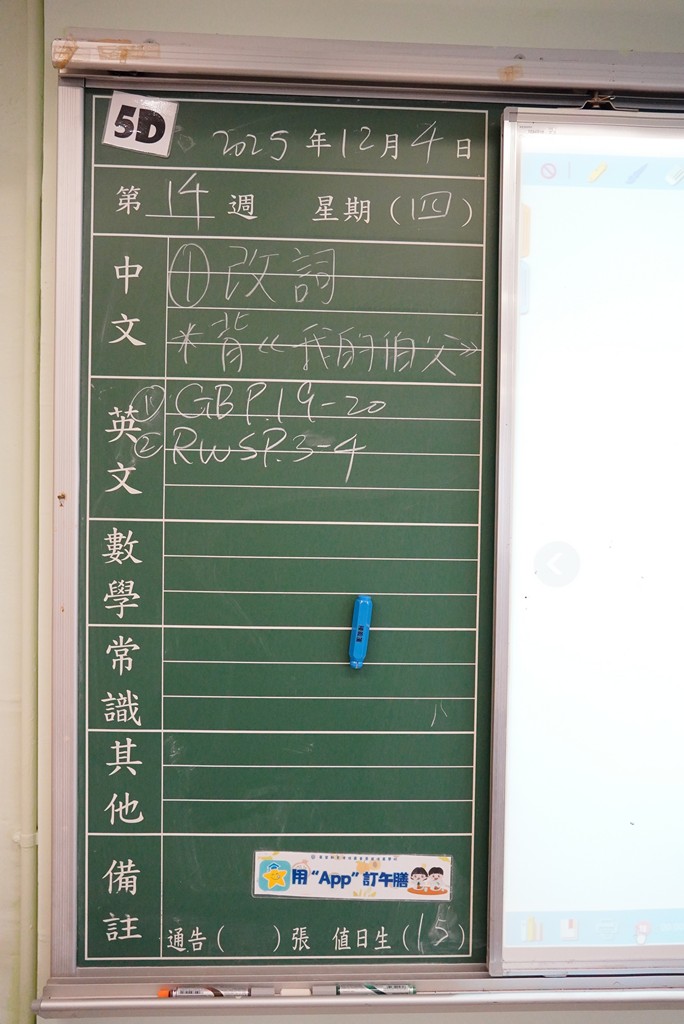 5D
2025年12月4日
第14週 星期(四)
中文
①改詞
*背《我的伯父》
英文
①GB P.19-20
②RWS P.3-4
數學
常識
其他
備註
用“App”訂午膳
通告( )張 值日生(15)